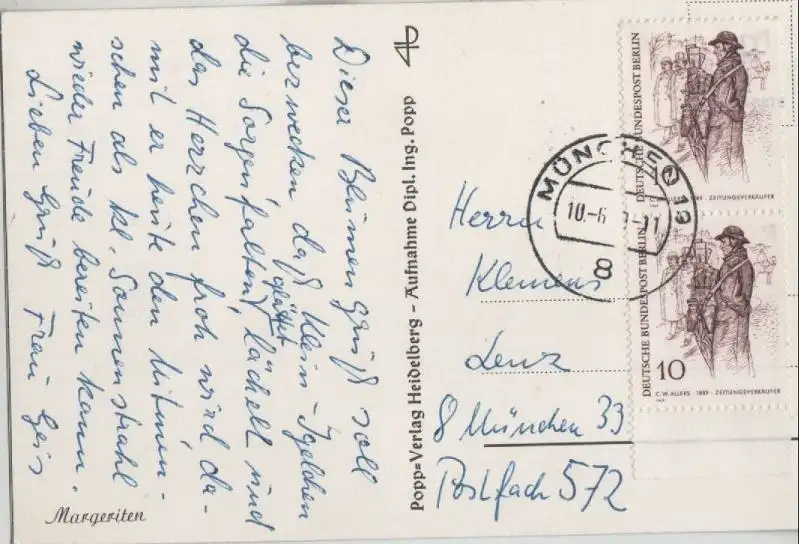 Dieser Blumengruß soll
bezwecken daß Klein-Igelchen
die Sorgenfalten glättet, lächelt und
das Herrchen froh wird da-
mit er heute den Mitmen-
schen als kl. Sonnenstrahl
wieder Freude bereiten kann.
Lieben Gruß Frau Geis
Margeriten
Popp=Verlag Heidelberg - Aufnahme Dipl. Ing. Popp
Herrn
Klemens
Lenz
8 München 33
Postfach 572
MÜNCHEN
10.-6
-11
8
DEUTSCHE BUNDESPOST BERLIN
1889 · ZEITUNGSVERKÄUFER
DEUTSCHE BUNDESPOST BERLIN
10
C.W. ALLERS · 1889 · ZEITUNGSVERKÄUFER